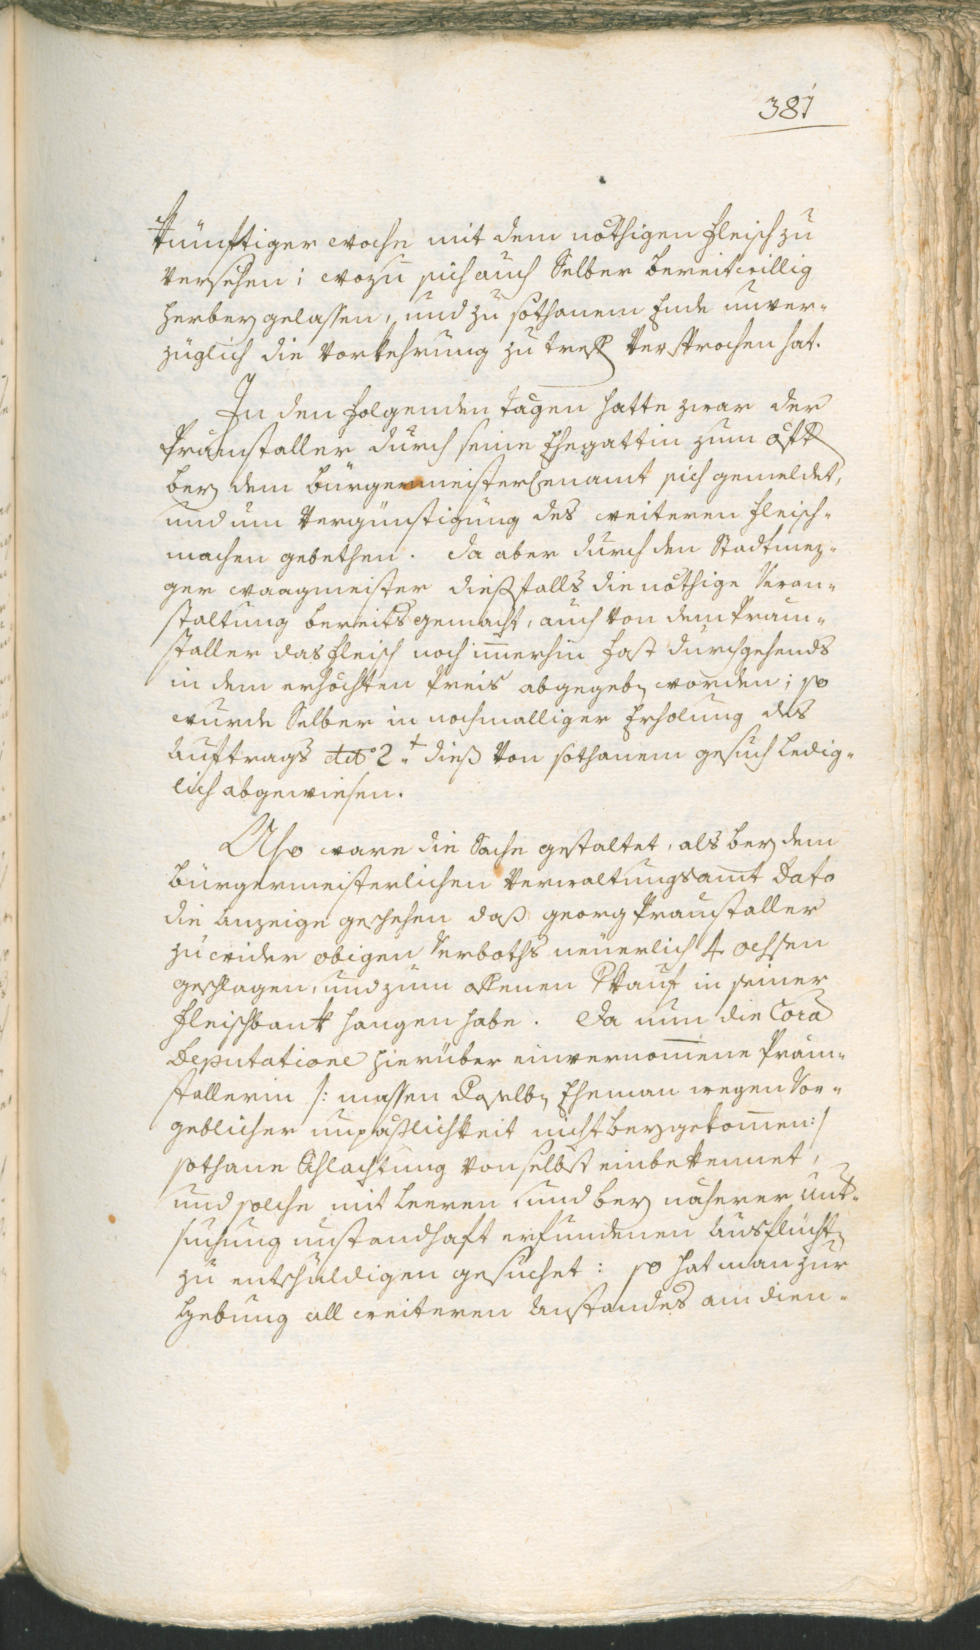 381
künftiger woche mit dem nöthigen fleisch zu
versehen; wozu sich auch Selber bereitwillig
herbey gelassen, und zu sothanem Ende unver-
züglich die Vorkehrung zu treff versprochen hat.
In den folgenden tägen hatte zwar der
Praunstaller durch seine Ehegattin zum öfft
bey dem bürgermeister amt sich gemeldet,
und um Vergünstigung des weiteren fleisch-
machen gebethen. da aber durch den Stadtmez-
ger waagmeister dießfalls die nöthige Veran-
staltung bereits gemacht, auch von dem Praun-
staller das fleisch noch imerhin fast durchgehends
in dem erhöchten Preis abgegeb worden; so
wurde Selber in nochmalliger Erholung des
Auftrags dto 2t dieß von sothanem gesuch ledig-
lich abgewiesen.
Also ware die Sache gestaltet, als bey dem
bürgermeisterlichen Verwaltungsamt dato
die anzeige geschehen daß georg Praustaller
zuwider obigen Verboths neuerlich 4 ochsen
geschlagen, und zum offenen Vkauf in seiner
fleischbank hangen habe. Da nun die Cora
Deputatione hierüber einvernomene Praun-
stallerin /: massen dasselb Eheman wegen Vor-
geblicher unpäßlichkeit nicht beygekomen:/
sothane Schlachtung von selbst einbekennet,
und solche mit leeren und bey näherer unt-
suchung unstandhaft erfundenen Ausflücht
zu entschuldigen gesuchet: so hat man zur
hebung all weiteren Anstandes am dien-